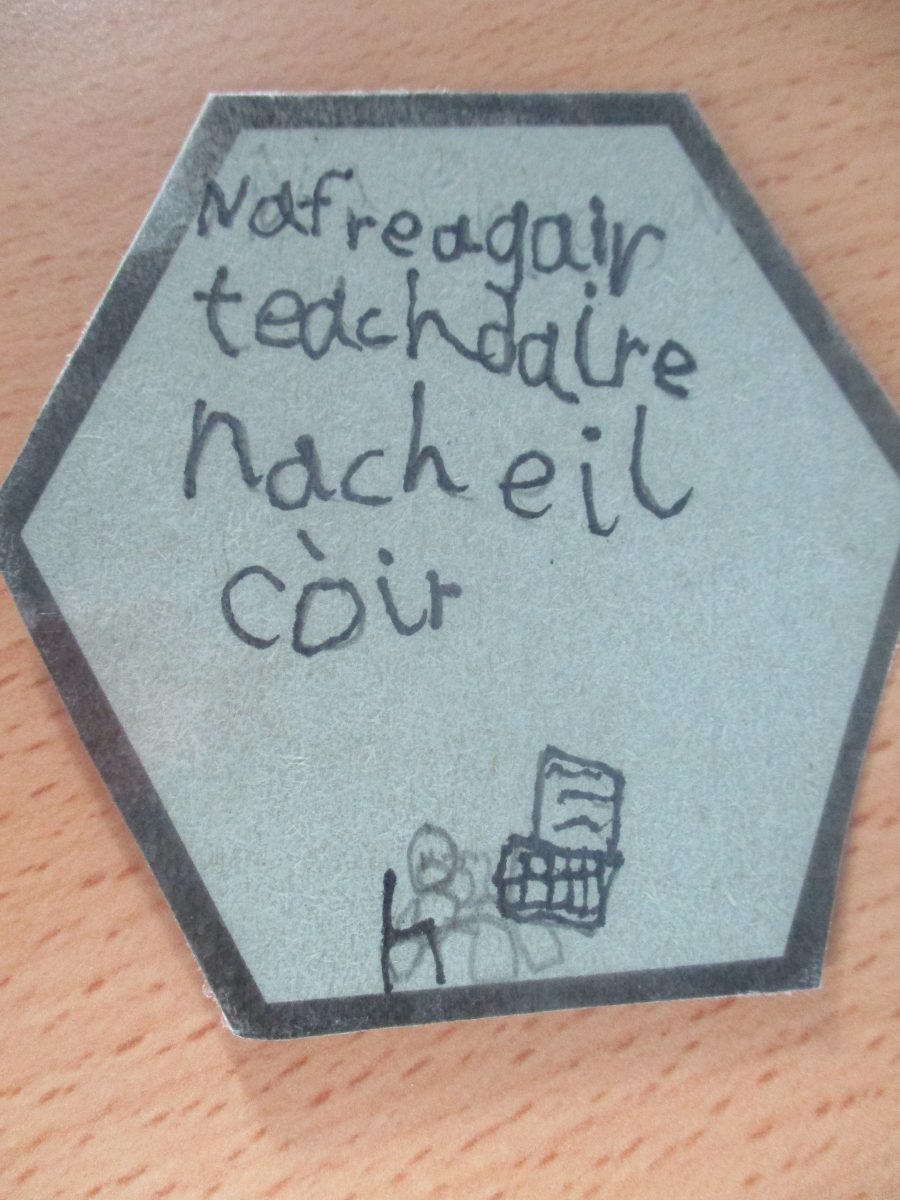 Nafreagair
teachdaire
nach eil
còir